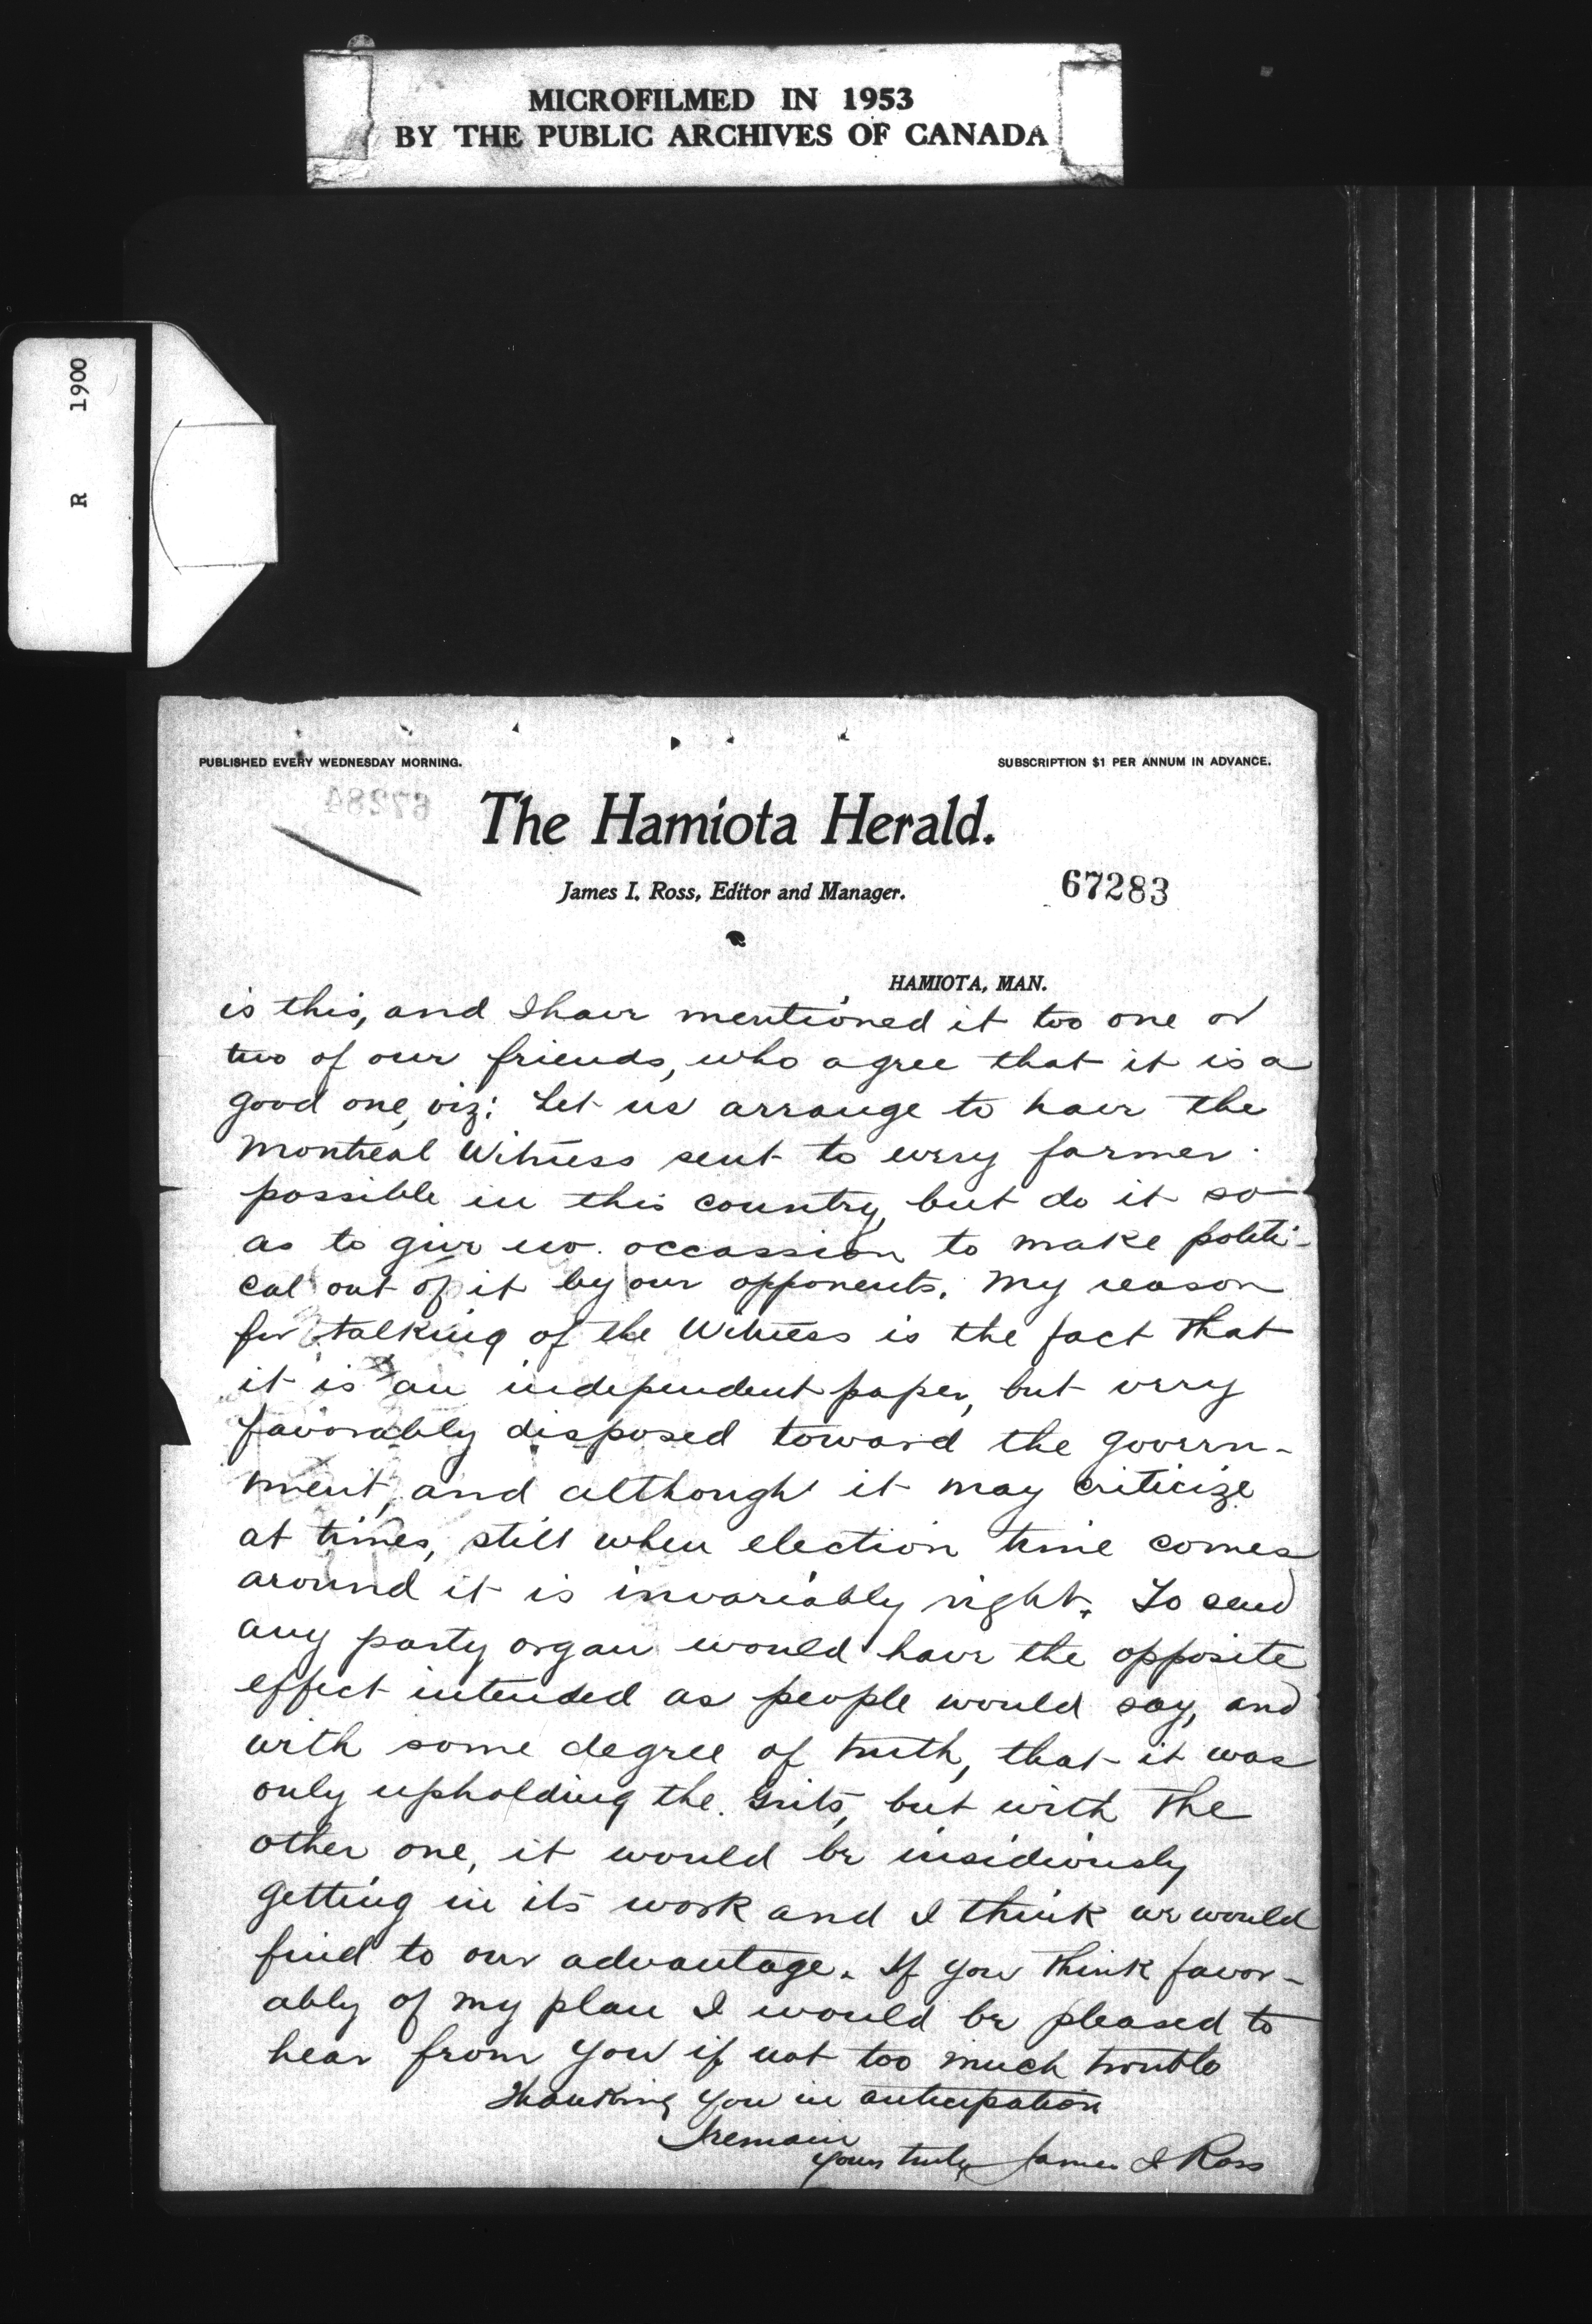 MICROFILMED IN 1953
BY THE PUBLIC ARCHIVES OF CANADA
R 1900
PUBLISHED EVERY WEDNESDAY MORNING.
SUBSCRIPTION $1 PER ANNUM IN ADVANCE.
67284
The Hamiota Herald.
James I. Ross, Editor and Manager.
67283
HAMIOTA, MAN.
is this, and I have mentioned it too one or
two of our friends, who agree that it is a
good one, viz: Let us arrange to have the
Montreal Witness sent to every farmer
possible in this country, but do it so
as to give no occassion to make politi-
cal out of it by our opponents. My reason
for talking of the Witness is the fact that
it is an independent paper, but very
favorably disposed toward the govern-
ment, and although it may criticize
at times, still when election time comes
around it is invariably right. To send
any party organ would have the opposite
effect intended as people would say, and
with some degree of truth, that it was
only upholding the Grits, but with the
other one, it would be insidiously
getting in its work and I think we would
find to our advantage. If you think favor-
ably of my plan I would be pleased to
hear from you if not too much trouble
Thanking you in anticipation
I remain
yours truly James I Ross